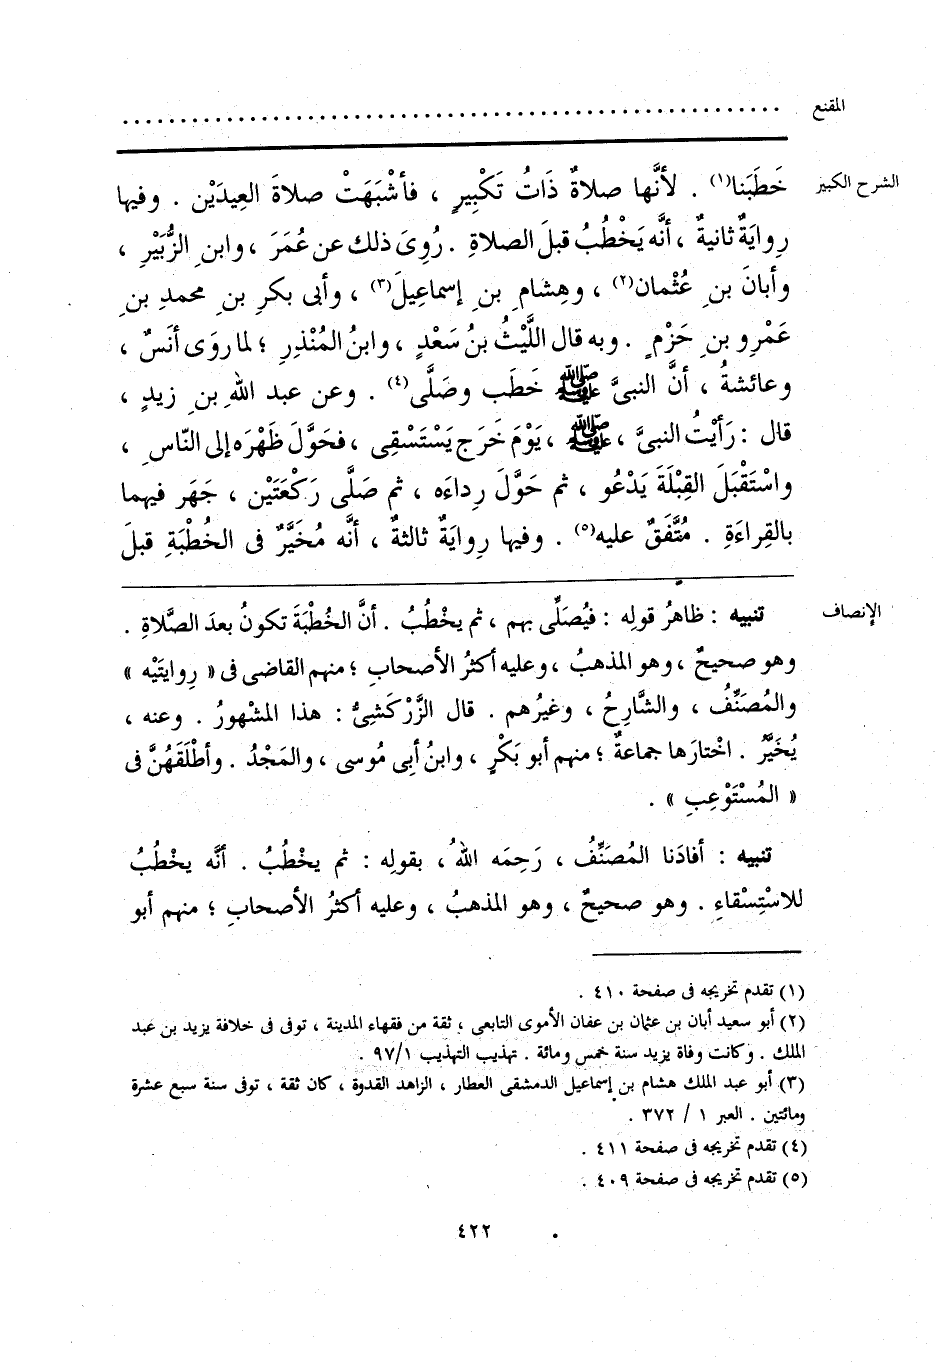 المقنع . . . . . . . . . . . . . . . . . . . . . . . . . . . . . . . . . . . . . . . . . . . . . . . .
الشرح الكبير
خَطَبَنا(١) . لأنَّها صلاةٌ ذَاتُ تَكْبِيرٍ ، فأشْبَهَتْ صلاةَ العِيدَيْن . وفيها
رِوايَةٌ ثانيةٌ ، أنَّه يَخْطُبُ قبلَ الصلاةِ . رُوِىَ ذلك عن عُمَرَ ، وابنِ الزُّبَيْرِ ،
وأبانَ بنِ عُثْمان(٢) ، وهِشامِ بنِ إسماعِيلَ(٣) ، وأبى بكرِ بنِ محمدِ بنِ
عَمْرِو بنِ حَزْمٍ . وبه قال اللَّيْثُ بنُ سَعْدٍ ، وابنُ المُنْذِرِ ؛ لما روَى أنَسٌ ،
وعائشةُ ، أنَّ النبىَّ ﷺ خَطَب وصَلَّى(٤) . وعن عبد اللهِ بنِ زيدٍ ،
قال : رَأيْتُ النبىَّ ، ﷺ ، يَوْمَ خَرَج يَسْتَسْقِى ، فحَوَّلَ ظَهْرَه إلى النّاسِ ،
واسْتَقْبَلَ القِبْلَةَ يَدْعُو ، ثم حَوَّلَ رِداءَه ، ثم صَلَّى رَكْعَتَيْن ، جَهَر فيهما
بالقِراءَةِ . مُتَّفَقٌ عليه(٥) . وفيها رِوايَةٌ ثالثةٌ ، أنَّه مُخَيَّرٌ فى الخُطْبَةِ قبلَ
الإنصاف
تنبيه : ظاهرُ قولِه : فيُصَلِّى بهم ، ثم يخْطُبُ . أنَّ الخُطْبَةَ تكونُ بعدَ الصَّلاةِ .
وهو صحيحٌ ، وهو المذهبُ ، وعليه أكثرُ الأصحابِ ؛ منهم القاضى فى « رِوايتَيْه »
والمُصَنِّفُ ، والشَّارِحُ ، وغيرُهم . قال الزَّرْكَشِىُّ : هذا المشهورُ . وعنه ،
يُخَيَّرُ . اخْتارَها جماعةٌ ؛ منهم أبو بَكْرٍ ، وابنُ أبِى مُوسى ، والمَجْدُ . وأطْلَقَهُنَّ فى
« المُسْتَوْعِبِ » .
تنبيه : أفادَنا المُصَنِّفُ ، رَحِمَه اللهُ ، بقولِه : ثم يخْطُبُ . أنَّه يخْطُبُ
للاسْتِسْقاءِ . وهو صحيحٌ ، وهو المذهبُ ، وعليه أكثرُ الأصحابِ ؛ منهم أبو
(١) تقدم تخريجه فى صفحة ٤١٠ .
(٢) أبو سعيد أبان بن عثمان بن عفان الأموى التابعى ، ثقة من فقهاء المدينة ، توفى فى خلافة يزيد بن عبد
الملك . وكانت وفاة يزيد سنة خمس ومائة . تهذيب التهذيب ٩٧/١ .
(٣) أبو عبد الملك هشام بن إسماعيل الدمشقى العطار ، الزاهد القدوة ، كان ثقة ، توفى سنة سبع عشرة
ومائتين . العبر ١ / ٣٧٢ .
(٤) تقدم تخريجه فى صفحة ٤١١ .
(٥) تقدم تخريجه فى صفحة ٤٠٩ .
٤٢٢